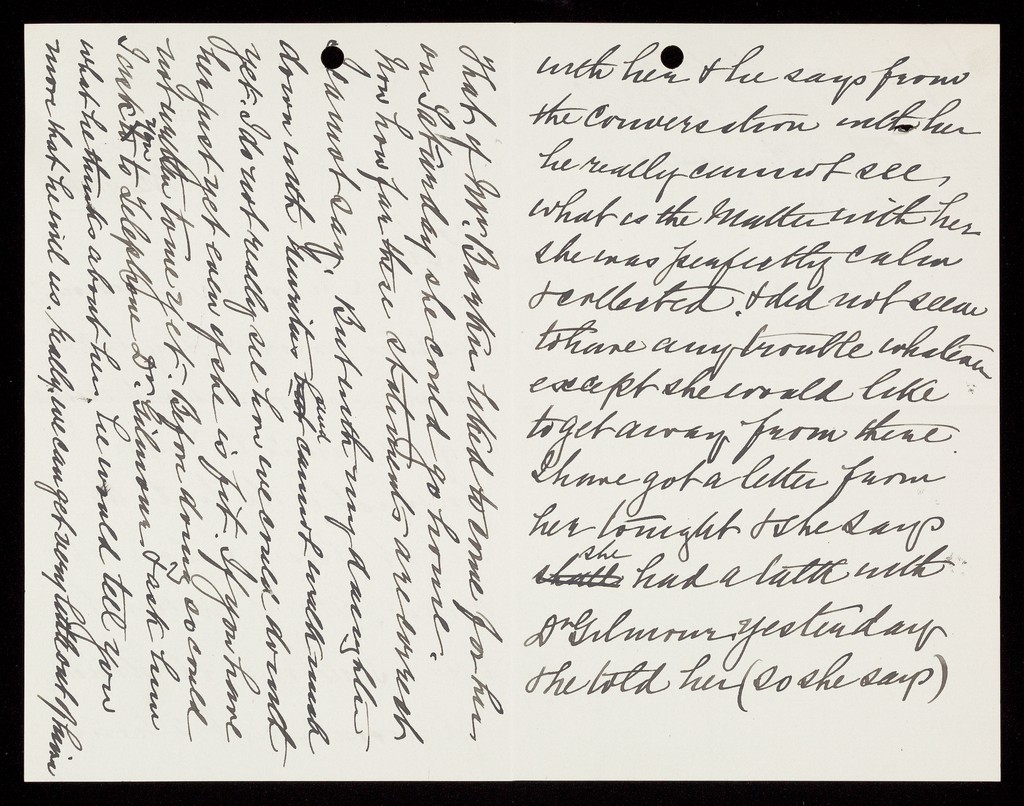 with her & he says from
the conversation with her
he really cannot see,
what is the matter with her
she was perfectly calm
& collected. & did not seem
to have any trouble whatever
except she would like
to get away from there
I have got a letter from
her tonight & she says
she had a talk with
Dr Gilmour yesterday
& he told her (so she says)
that if Mr. Baykin liked to come for her,
on Saturday she could go home.
now how far these statements are correct
I cannot say. But with my daughter
down with bronchitis and cannot walk much
yet. I do not really see how we could do with
her just yet even if she is fit. If you have
not written to me yet. By doing so could
I ask you to telephone Dr. Gilmour & ask him
what he thinks about her. he would tell you
more that he will us. really we can get very little out of him